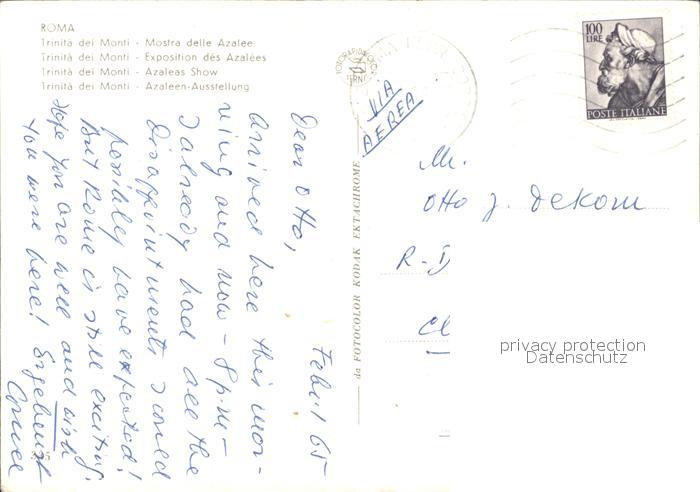 ROMA
Trinità dei Monti - Mostra delle Azalee
Trinità dei Monti - Exposition dés Azalées
Trinità dei Monti - Azaleas Show
Trinità dei Monti - Azaleen-Ausstellung
Febr. 1 65
Dear Otto,
Arrived here this mor-
ning and now - 8 p.m -
I already had all the
Disappointments I could
possibly have expected!
But Rome is still exciting.
Hope you are well and wish
you were here!
da FOTOCOLOR KODAK EKTACHROME
VIA
AEREA
100
LIRE
POSTE ITALIANE
Mr.
Otto J. Dekom
R-D
Cl
privacy protection
Datenschutz